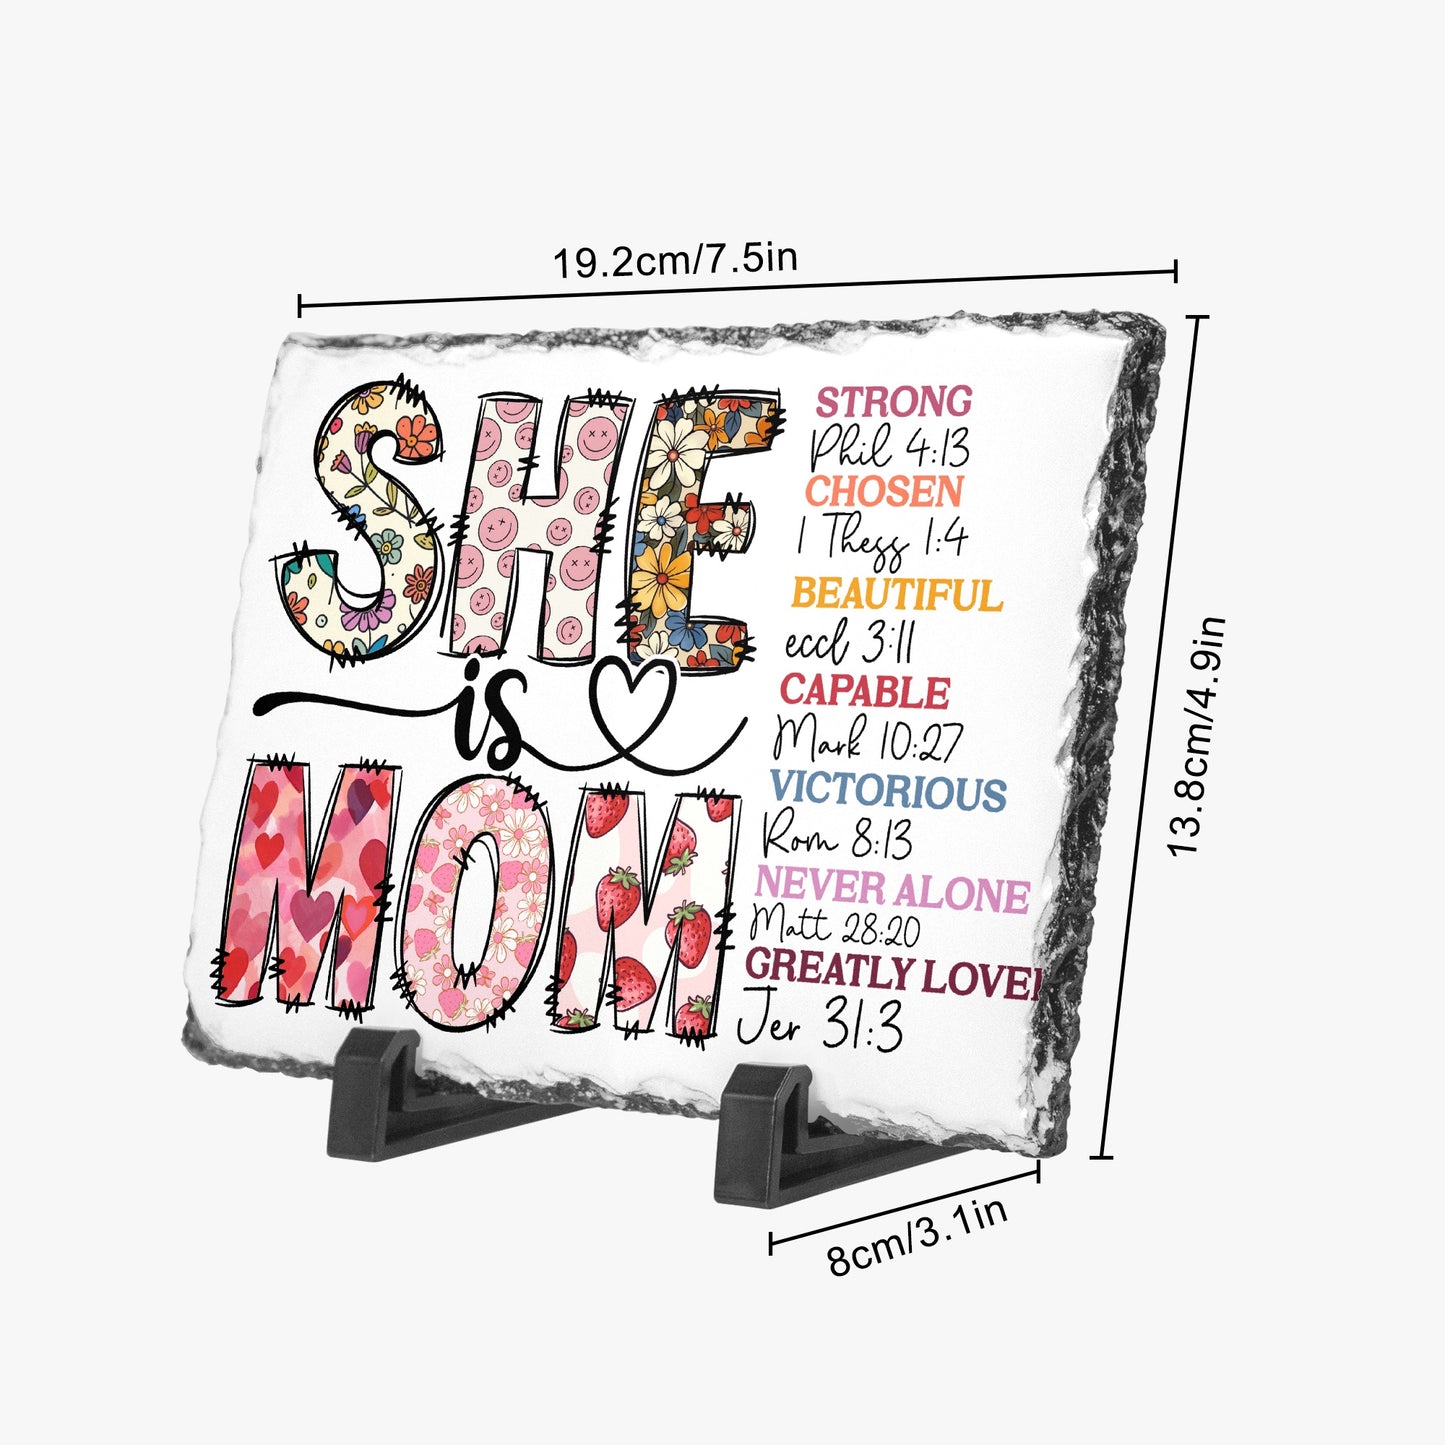 19.2cm/7.5in
SHE
is
MOM
STRONG
Phil 4:13
CHOSEN
1 Thess 1:4
BEAUTIFUL
eccl 3:11
CAPABLE
Mark 10:27
VICTORIOUS
Rom 8:13
NEVER ALONE
Matt 28:20
GREATLY LOVE
Jer 31:3
13.8cm/4.9in
8cm/3.1in